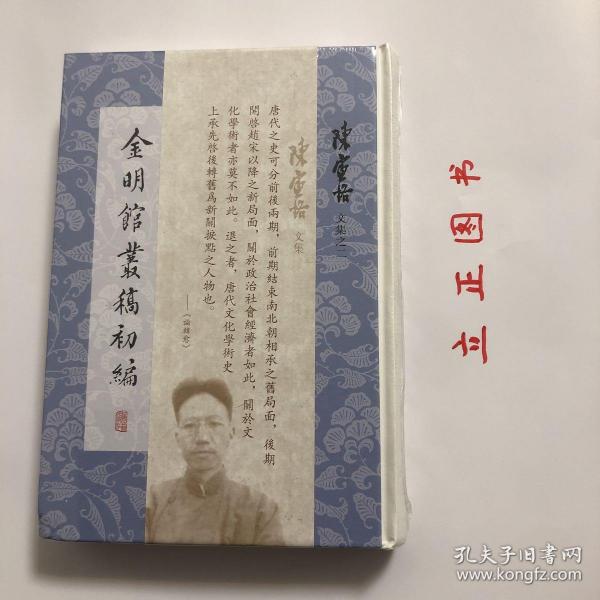 金明館叢稿初編
陳寅恪
文集之二
陳寅恪
文集
唐代之史可分前後兩期，前期結束南北朝相承之舊局面，後期
開啓趙宋以降之新局面，關於政治社會經濟者如此，關於文
化學術者亦莫不如此。退之者，唐代文化學術史
上承先啓後轉舊爲新關捩點之人物也。
——《論韓愈》
立正图书
孔夫子旧书网
www.kongfz.com